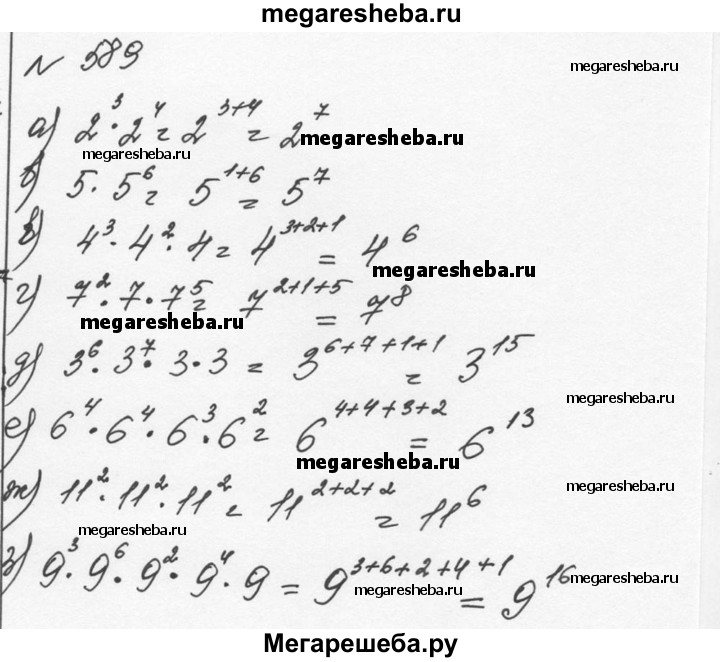 megaresheba.ru
№ 589
megaresheba.ru
а) 2³·2⁴ = 2³⁺⁴ = 2⁷
megaresheba.ru
megaresheba.ru
б) 5·5⁶ = 5¹⁺⁶ = 5⁷
в) 4³·4²·4 = 4³⁺²⁺¹ = 4⁶
megaresheba.ru
г) 7²·7·7⁵ = 7²⁺¹⁺⁵ = 7⁸
megaresheba.ru
д) 3⁶·3⁷·3·3 = 3⁶⁺⁷⁺¹⁺¹ = 3¹⁵
megaresheba.ru
е) 6⁴·6⁴·6³·6² = 6⁴⁺⁴⁺³⁺² = 6¹³
megaresheba.ru
ж) 11²·11²·11² = 11²⁺²⁺² = 11⁶
megaresheba.ru
megaresheba.ru
з) 9³·9⁶·9²·9⁴·9 = 9³⁺⁶⁺²⁺⁴⁺¹ = 9¹⁶
megaresheba.ru
megaresheba.ru
Мегарешеба.ру